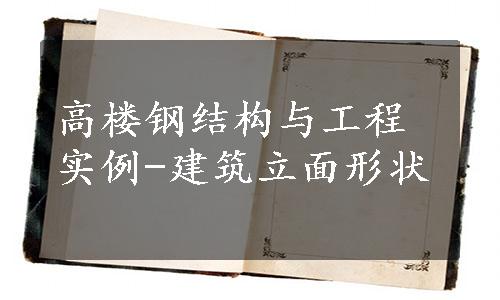 高楼钢结构与工程
实例-建筑立面形状